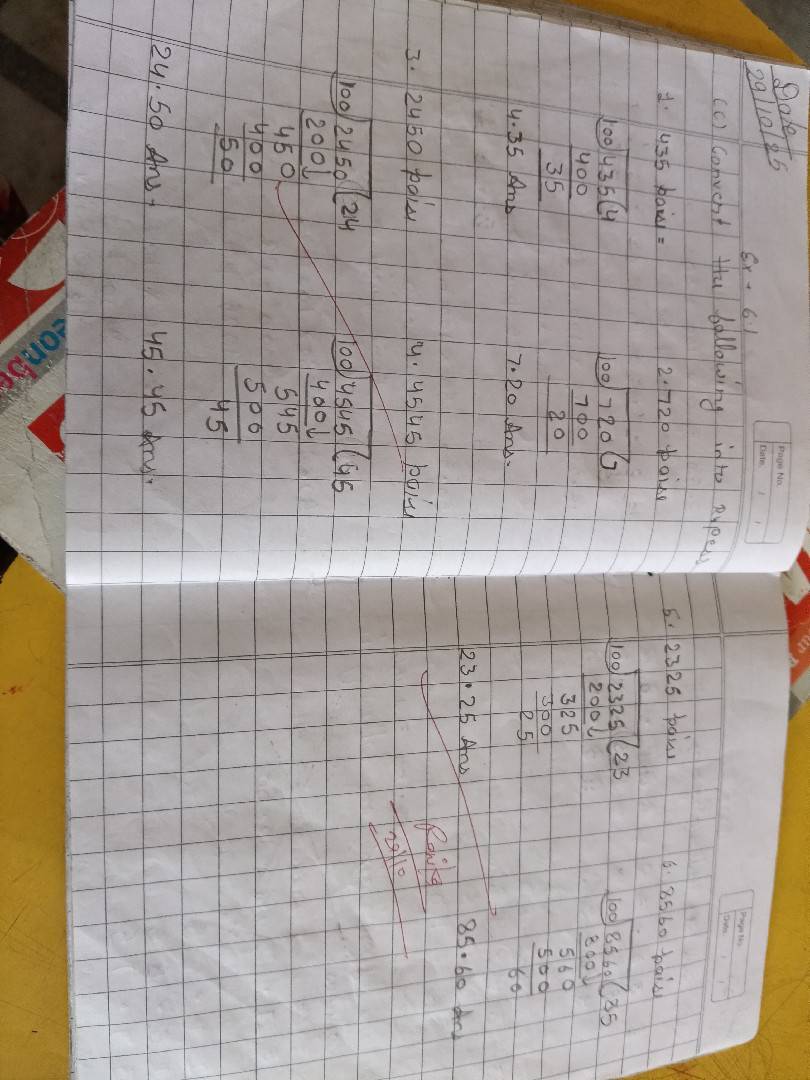 Date
29/10/25
Page No.
Date
Ex - 6.1
(C) Convert the following into Rupees
1. 435 paise =
2. 720 paise
100)435(4
400
35
4.35 Ans
100)720(7
700
20
7.20 Ans.
3. 2450 paise
4. 4545 paise
100)2450(24
200↓
450
400
50
24.50 Ans.
100)4545(45
400↓
545
500
45
45.45 Ans.
Page No.
Date
5. 2325 paise
6. 8560 paise
100)2325(23
200↓
325
300
25
23.25 Ans
100)8560(85
800↓
560
500
60
85.60 Ans